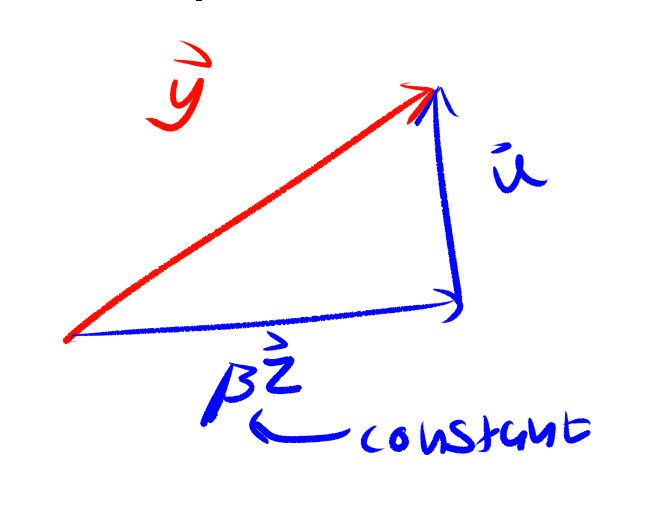 y⃗
u⃗
βz⃗
constant